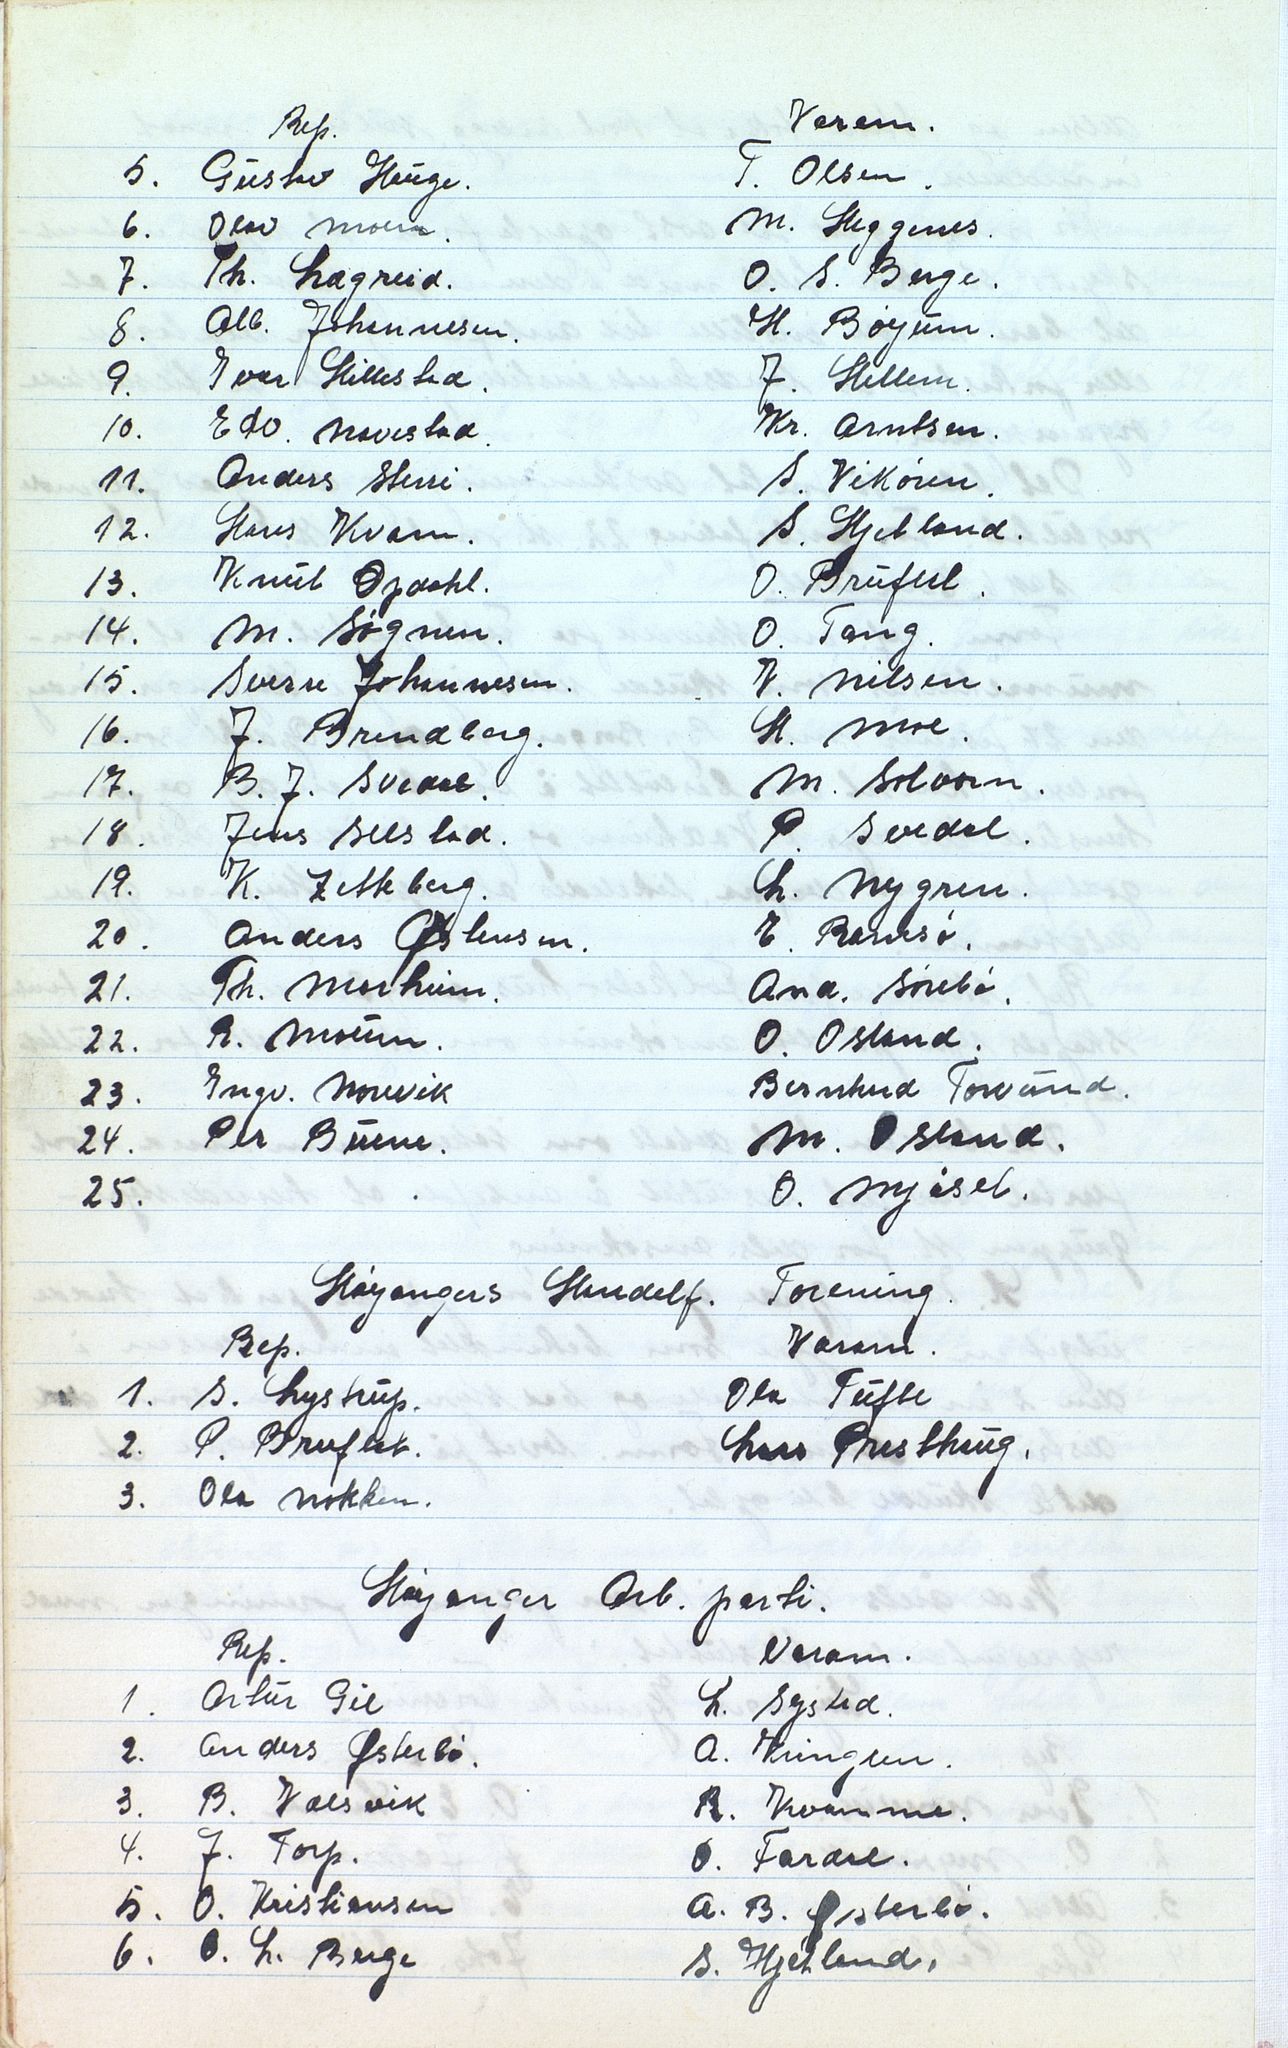 Rep. Varam.
5. Gustav Hauge. T. Olsen.
6. Olav Moen. M. Heggenes.
7. Th. Lægreid. O. S. Berge.
8. Alb. Johannesen. H. Bøyum.
9. Ivar Hillestad. J. Hellem.
10. Edv. Navestad. Kr. Arntsen.
11. Anders Sterri. S. Vikøren.
12. Hans Kvam. S. Hjetland.
13. Knut Opdahl. O. Brüflat.
14. M. Søgnen. O. Tang.
15. Sverre Johannesen. V. Nilsen.
16. J. Brendberg. H. Moe.
17. B. J. Svedal. M. Solvorn.
18. Jens Selstad. P. Svedal.
19. K. Zetteberg. L. Nygren.
20. Anders Østensen. E. Ramsø.
21. Th. Morheim. And. Sørebø.
22. R. Moum. O. Osland.
23. Ingv. Norevik Bernhard Torvund.
24. Per Buene. M. Osland.
25. O. Mjøset.
Høyangers Handelf. Forening.
Rep. Varam.
1. S. Lystrup. Ola Tufte
2. P. Bruflat. Lars Presthaug.
3. Ola Nokken.
Høyanger Arb. parti.
Rep. Varam.
1. Artur Gil L. Systad.
2. Anders Østerbø. A. Kringen.
3. B. Valsvik R. Kvamme.
4. J. Torp. O. Fardal.
5. O. Kristiansen A. B. Østerbø.
6. O. L. Berge S. Hjetland.